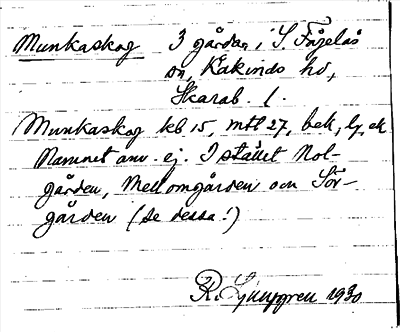 Munkaskog 3 gårdar i S. Fågelås
sn, Kåkinds hd,
Skarab. l.
Munkaskog kb 15, mtl 27, bek, ly, ek
Namnet anv. ej. I stället Nol-
gården, Mellomgården och Sör-
gården (Se dessa!)
R. Ljunggren 1930